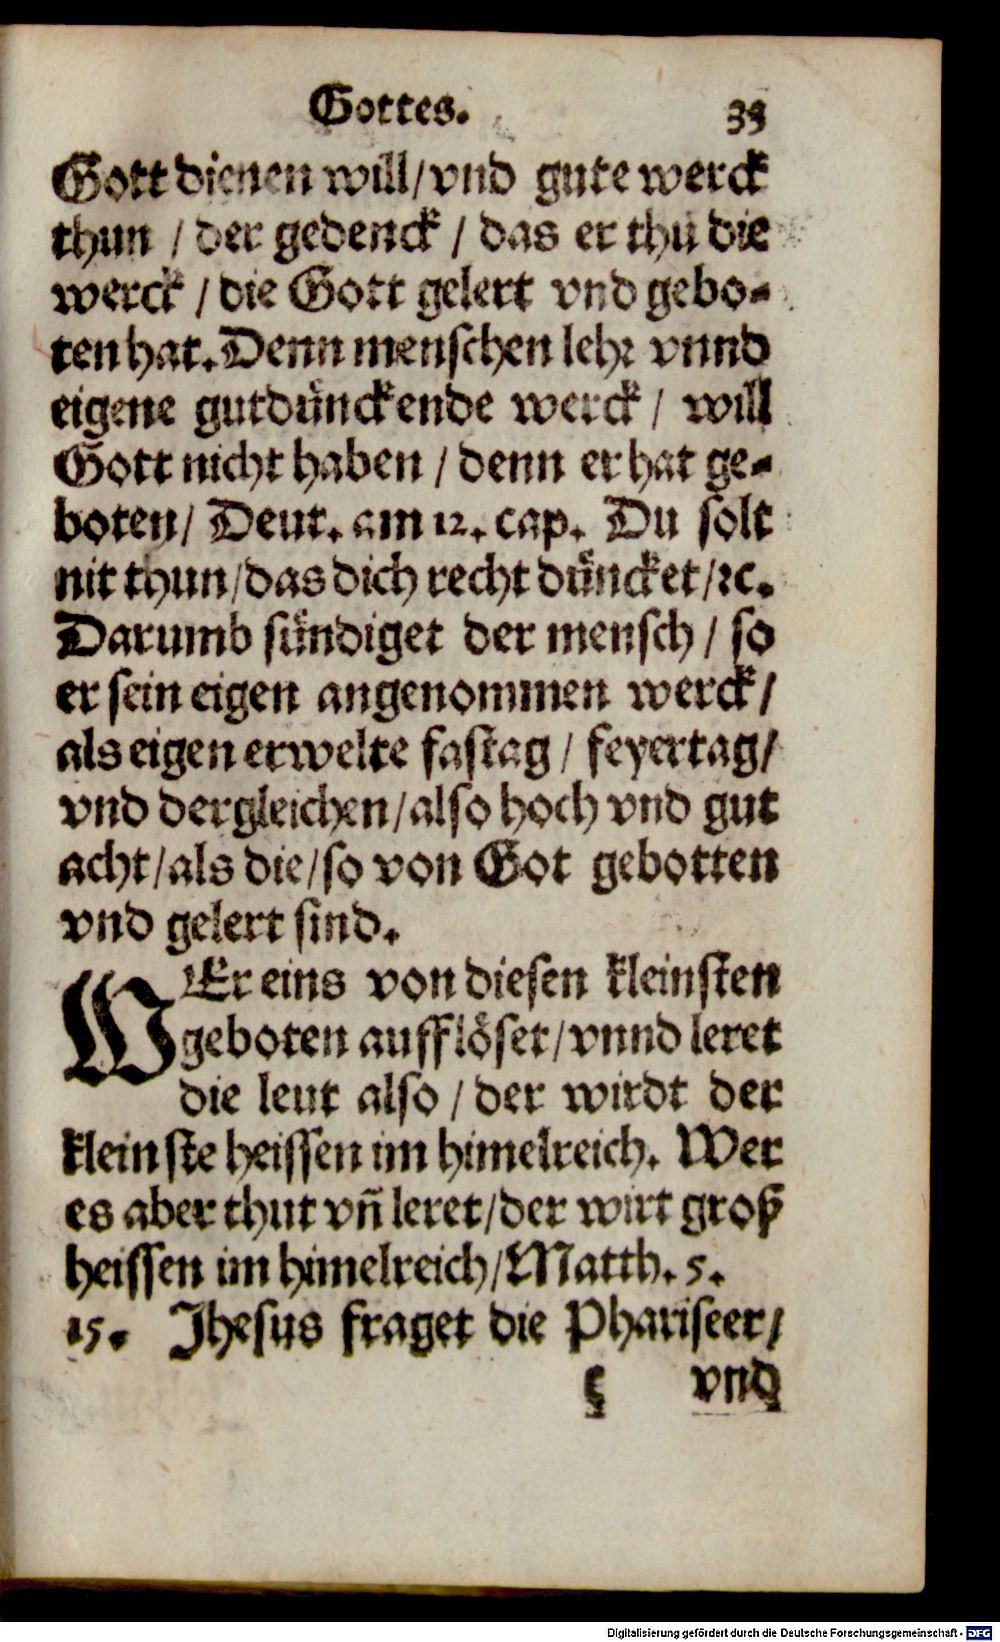 Gottes. 33
Gott dienen will/vnd gute werck
thun / der gedenck / das er thu die
werck / die Gott gelert vnd gebo-
ten hat. Denn menschen lehr vnnd
eigene gutdünckende werck / will
Gott nicht haben / denn er hat ge-
boten/ Deut. am 12. cap. Du solt
nit thun/das dich recht düncket/ꝛc.
Darumb sündiget der mensch / so
er sein eigen angenommen werck/
als eigen erwelte fastag / feyertag/
vnd dergleichen/also hoch vnd gut
acht/als die/so von Got gebotten
vnd gelert sind.
WEr eins von diesen kleinsten
geboten aufflöset/vnnd leret
die leut also / der wirdt der
kleinste heissen im himelreich. Wer
es aber thut vñ leret/der wirt groß
heissen im himelreich/Matth. 5.
15. Jhesus fraget die Phariseer/
vnd
Digitalisierung gefördert durch die Deutsche Forschungsgemeinschaft - DFG